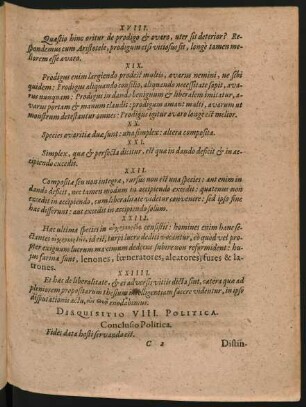 XVIII.
Quæstio hinc oritur de prodigo & avaro, uter sit deterior? Re-
spondemus cum Aristotele, prodigum etsi vitiosus sit, longè tamen me-
liorem esse avaro.
XIX.
Prodigus enim largiendo prodest multis, avarus nemini, ne sibi
quidem: Prodigus aliquando consilio, aliquando necessitate sapit, ava-
rus nunquam: Prodigus in dando benignum & liberalem imitatur, a-
varus portam & manum claudit: prodigum amant multi, avarum ut
monstrum detestantur omnes: Prodigus igitur avaro longè est melior.
XX.
Species avaritiæ duæ sunt: una simplex: altera composita.
XXI.
Simplex, quæ & perfecta dicitur, est quæ in dando deficit & in ac-
cipiendo excedit.
XXII.
Composita seu non integra, rursus non est una species: aut enim in
dando deficit, nec tamen modum in accipiendo excedit: quatenus non
excedit in accipiendo, cum liberalitate videtur convenire: sed ipso fine
hac differunt: aut excedit in accipiendo solum.
XXIII.
Hæc ultima species in consistit: homines enim hanc se-
ctantes sibi, id est, turpi lucro dediti vocantur, eò quod vel pro-
pter exiguum lucrum maximum dedecus subire non reformident: hu-
jus farinæ sunt, lenones, fœneratores, aleatores, fures & la-
trones.
XXIIII.
Et hæc de liberalitate, & ei adversis vitiis dicta sint, cætera quæ ad
pleniorem propositarum thesium intelligentiam facere videntur, in ipso
disputationis actu, enodabimus.
DISQUISITIO VIII. POLITICA.
Conclusio Politica.
Fides data hosti servanda est.
C 2 Distin-